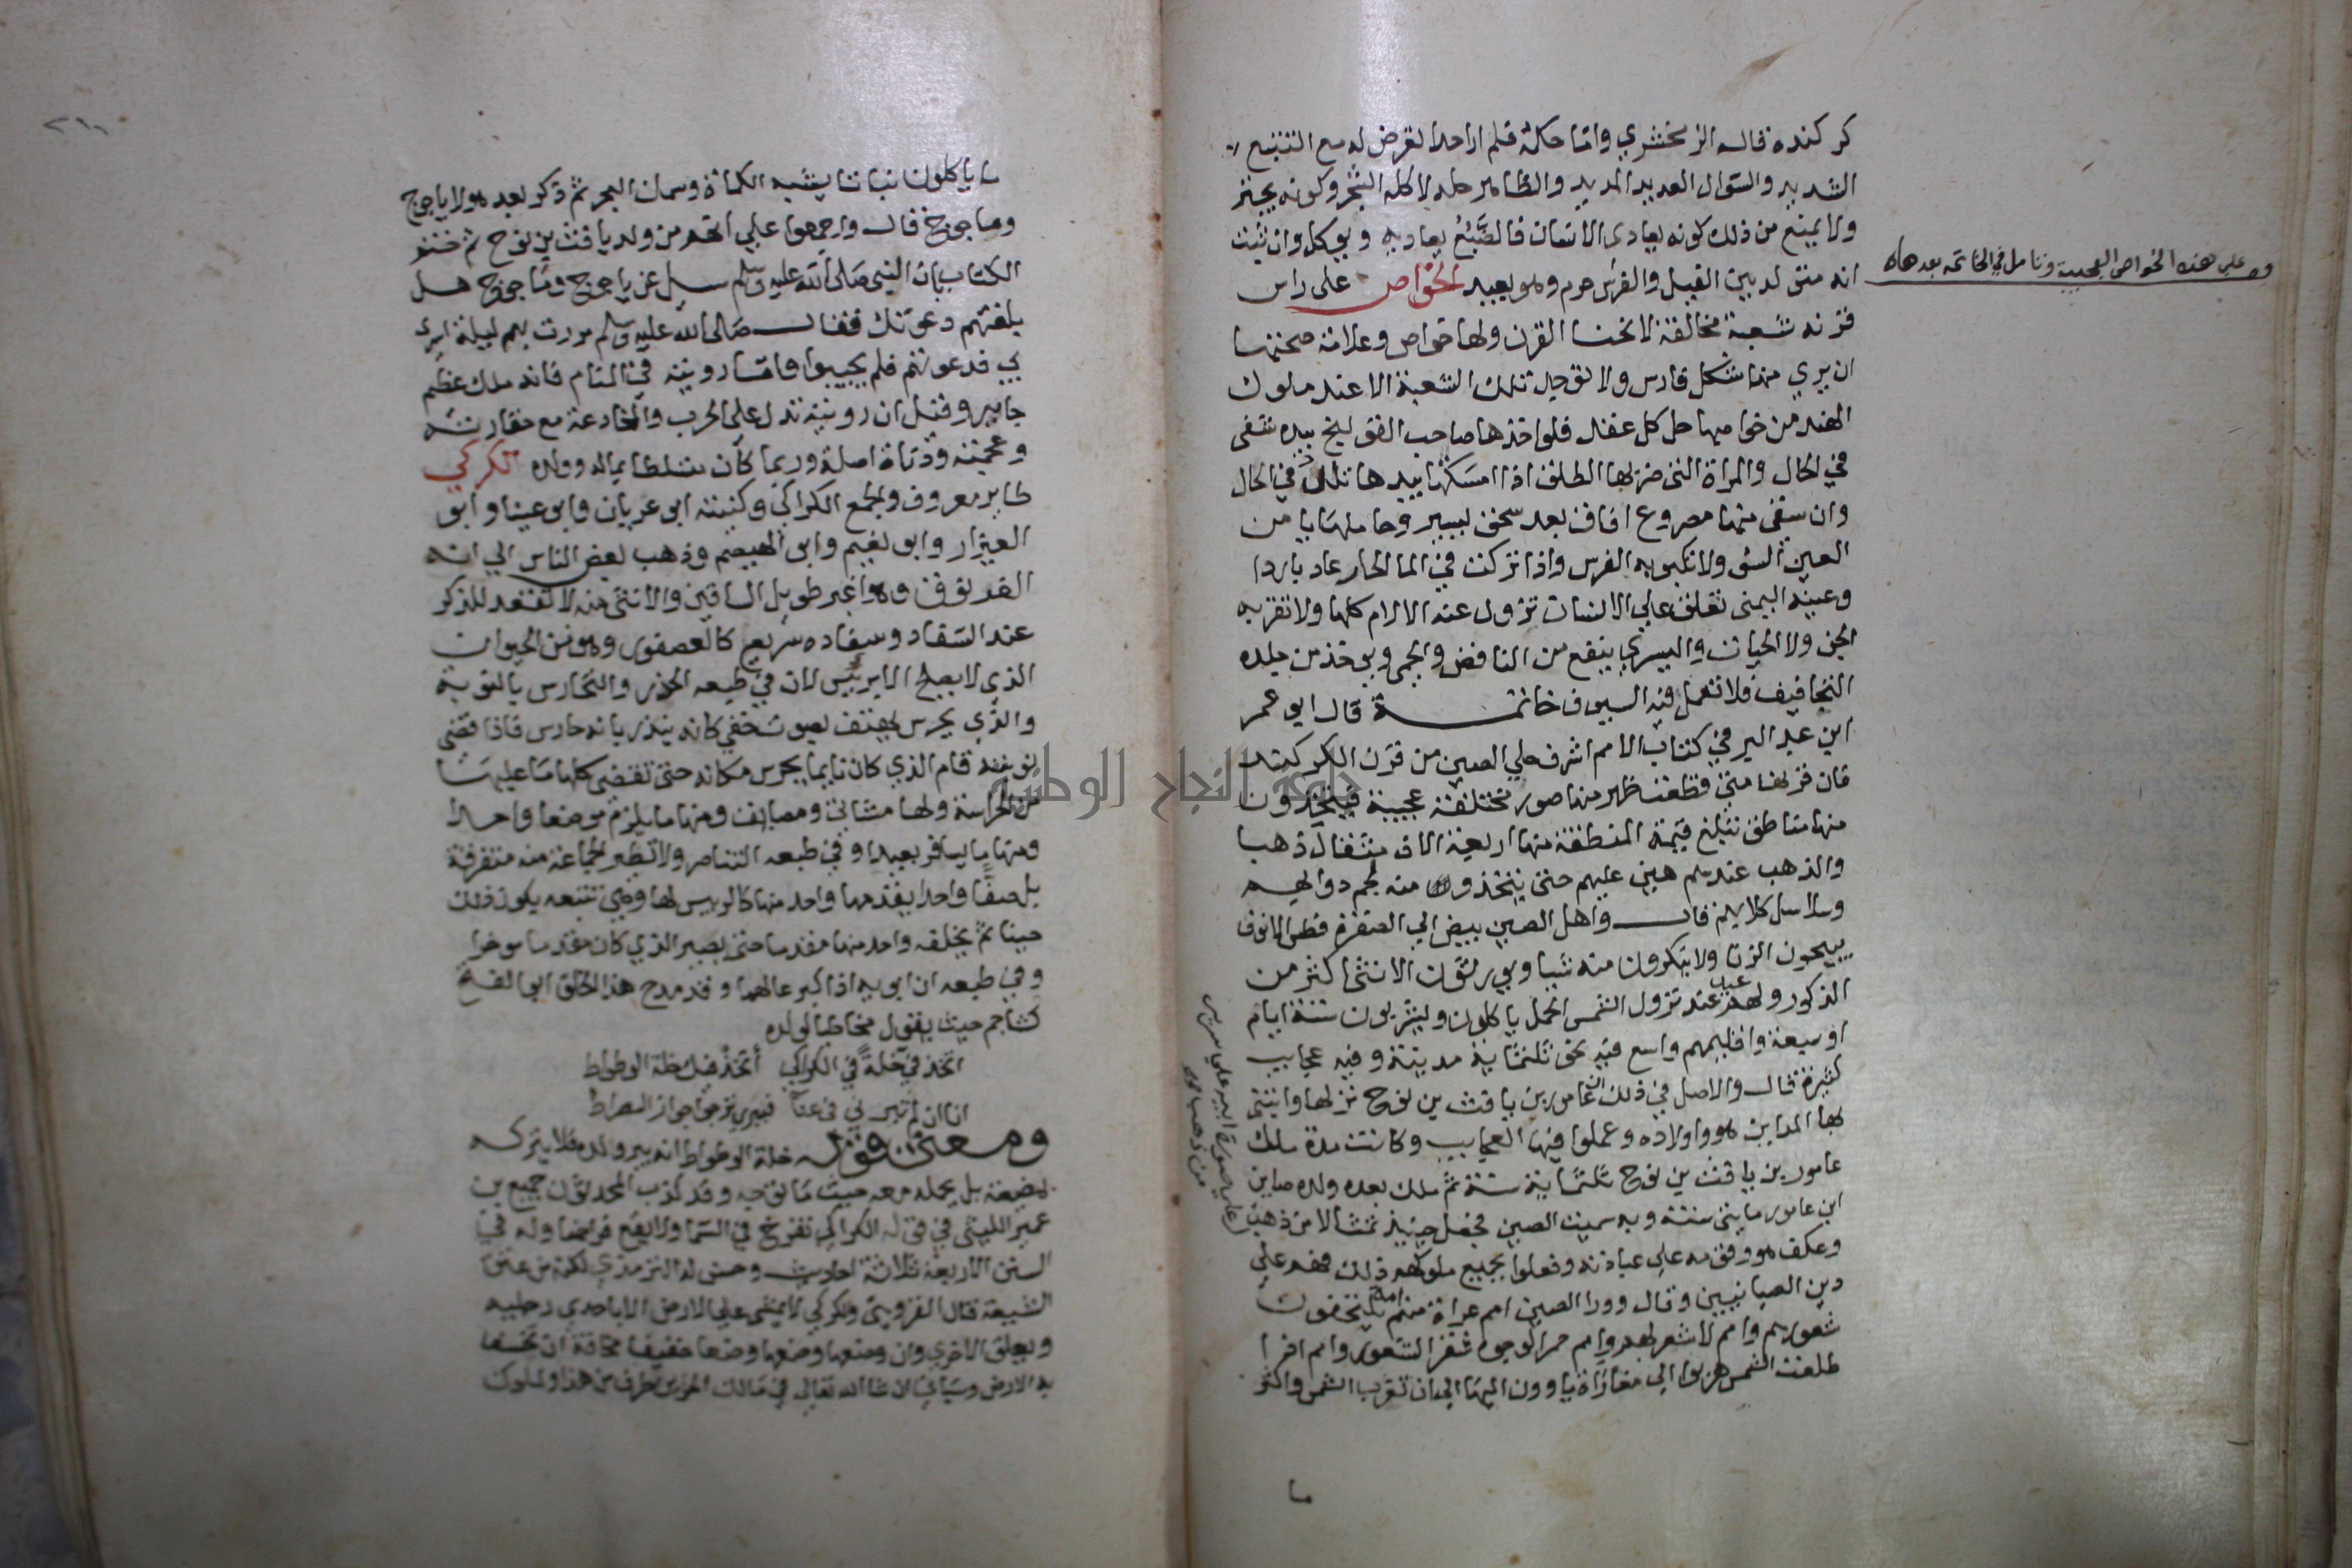 كركنده قاله الزمخشري واما حكمه فلم ار احدا تعرض له مع التتبع
الشديد والسوال العديد المديد والظاهر حله لاكله الشجر وكونه يجتر
ولا يمنع من ذلك كونه يعادي الانسان فالضبع يعاديه ويوكل وان ثبت
انه متولد بين الفيل والفرس حرم وهو بعيد الخواص على راس
قرنه شعبة مخالفة لانحنا القرن ولها خواص وعلامة صحتها
ان يري منها شكل فارس ولا توجد تلك الشعبة الا عند ملوك
الهند من خواصها حل كل عقد فلو اخذها صاحب القولنج بيده شفى
في الحال والمراة التي ضربها الطلق اذا امسكتها بيدها تلد في الحال
وان سقى منها مصروع افاق بعد سحق يسير وحاملها يامن
العين السو ولا تكبو به الفرس واذا تركت في الما الحار عاد باردا
وعينه اليمنى تعلق علي الانسان تزول عنه الالام كلها ولا تقربه
الجن ولا الحيات واليسري ينفع من النافض والحمى ويوخذ من جلده
التجافيف فلا تعمل فيه السيوف خاتمة قال ابو عمر
ابن عبد البر في كتاب الامم اشرف حلي الصين من قرن الكركند
فان قرنها متى قطعت ظهر منها صور مختلفة عجيبة فيتخذون
منها مناطق تبلغ قيمة المنطقة منها اربعة الاف مثقال ذهبا
والذهب عندهم هين عليهم حتى يتخذون منه لجم دوابهم
وسلاسل كلابهم قال واهل الصين بيض الي الصفرة فطس الانوف
يبيحون الزنا ولا ينكرون منه شيا ويورثون الانثى اكثر من
الذكور ولهم عيد عند نزول الشمس الحمل ياكلون ويشربون ستة ايام
او سبعة واقليمهم واسع فيه نحو ثلثماية مدينة وفيه عجايب
كثيرة قال والاصل في ذلك ان عامور بن يافث بن نوح نزلها وابتنى
بها المداين هو واولاده وعملوا فيها العجايب وكانت مدة ملك
عامور بن يافث بن نوح ثلثماية سنة ثم ملك بعده ولده صاين
ابن عامور مايتي سنة وبه سميت الصين فجعل حينيذ تمثالا من ذهب
وعكف هو وقومه علي عبادته وفعلوا بجميع ملوكهم ذلك فهم علي
دين الصابيين وقال وورا الصين امم عراة منهم امة يلتحفون
شعورهم وامم لا شعر لهم وامم حمر الوجوه شقر الشعور وامم اذا
طلعت الشمس هربوا الي مغارة ياوون اليها الي ان تغرب الشمس واكثر
ما
علي هذه الخواص العجيبة وتامل في الخاتمة بعدها
علي صورة ابيه علي سرير
من ذهب
ما ياكلون نباتا يشبه الكماة وسمان البحر ثم ذكر بعد هولا ياجوج
وماجوج قال واجمعوا علي انهم من ولد يافث بن نوح ثم ختم
الكتاب بان النبي صلى الله عليه وسلم سيل عن ياجوج وماجوج هل
بلغتهم دعوتك فقال صلى الله عليه وسلم مررت بهم ليلة اسري
بي فدعوتهم فلم يجيبوا واما رويته في المنام فانه ملك عظيم
جاير وقيل ان رويته تدل علي الحرب والمخادعة مع حقارته
وعجبته ودناة اصله وربما كان متسلطا بماله وولده الكركي
طاير معروف والجمع الكراكي وكنيته ابو عريان وابو عينا وابو
العيزار وابو نعيم وابو الهيصم وذهب بعض الناس الي انه
الغرنوق وهو اغبر طويل الساقين والانثى منه لا تقعد للذكر
عند السفاد وسفاده سريع كالعصفور وهو من الحيوان
الذي لا يصلح الا برئيس لان في طبعه الحذر والتحارس بالنوبة
والذي يحرس يهتف بصوت خفي كانه ينذر بانه حارس فاذا قضى
نوبته قام الذي كان نايما يحرس مكانه حتى تقضي كلها ما عليها
من الحراسة ولها مشاتي ومصايف ومنها ما يلزم موضعا واحدا
ومنها ما يسافر بعيدا وفي طبعه التناصر ولا تطير الجماعة منه متفرقة
بل صفا واحدا يقدمها واحد منها كالريس لها وهي تتبعه يكون ذلك
حينا ثم يخلفه واحد منها مقدما حتى يصير الذي كان مقدما موخرا
وفي طبعه ان ابويه اذا كبرا عالهما وقد مدح هذا الخلق ابو الفتح
كشاجم حيث يقول مخاطبا لولده
اتخذ في خلة في الكراكي اتخذ فيك خلة الوطواط
انا ان لم تبر لي في عنا فببري ترجو جواز الصراط
ومعنى قوله خلة الوطواط انه يبر ولده فلا يتركه
بمضيعة بل يحمله معه حيث ما توجه وقد كذب المحدثون جميع بن
عمير الليثي في قوله الكراكي تفرخ في السما ولا يقع فراخها وله في
السنن الاربعة ثلاثة احاديث وحسن له الترمذي لكنه من عتق
الشيعة قال القزويني والكركي لا يمشي علي الارض الا باحدي رجليه
ويعلق الاخري وان وضعها وضعها وضعا خفيفا مخافة ان تخسف
به الارض وسياتي ان شا الله تعالي في مالك الحزين طرف من هذا ولملوك
جامعة النجاح الوطنية